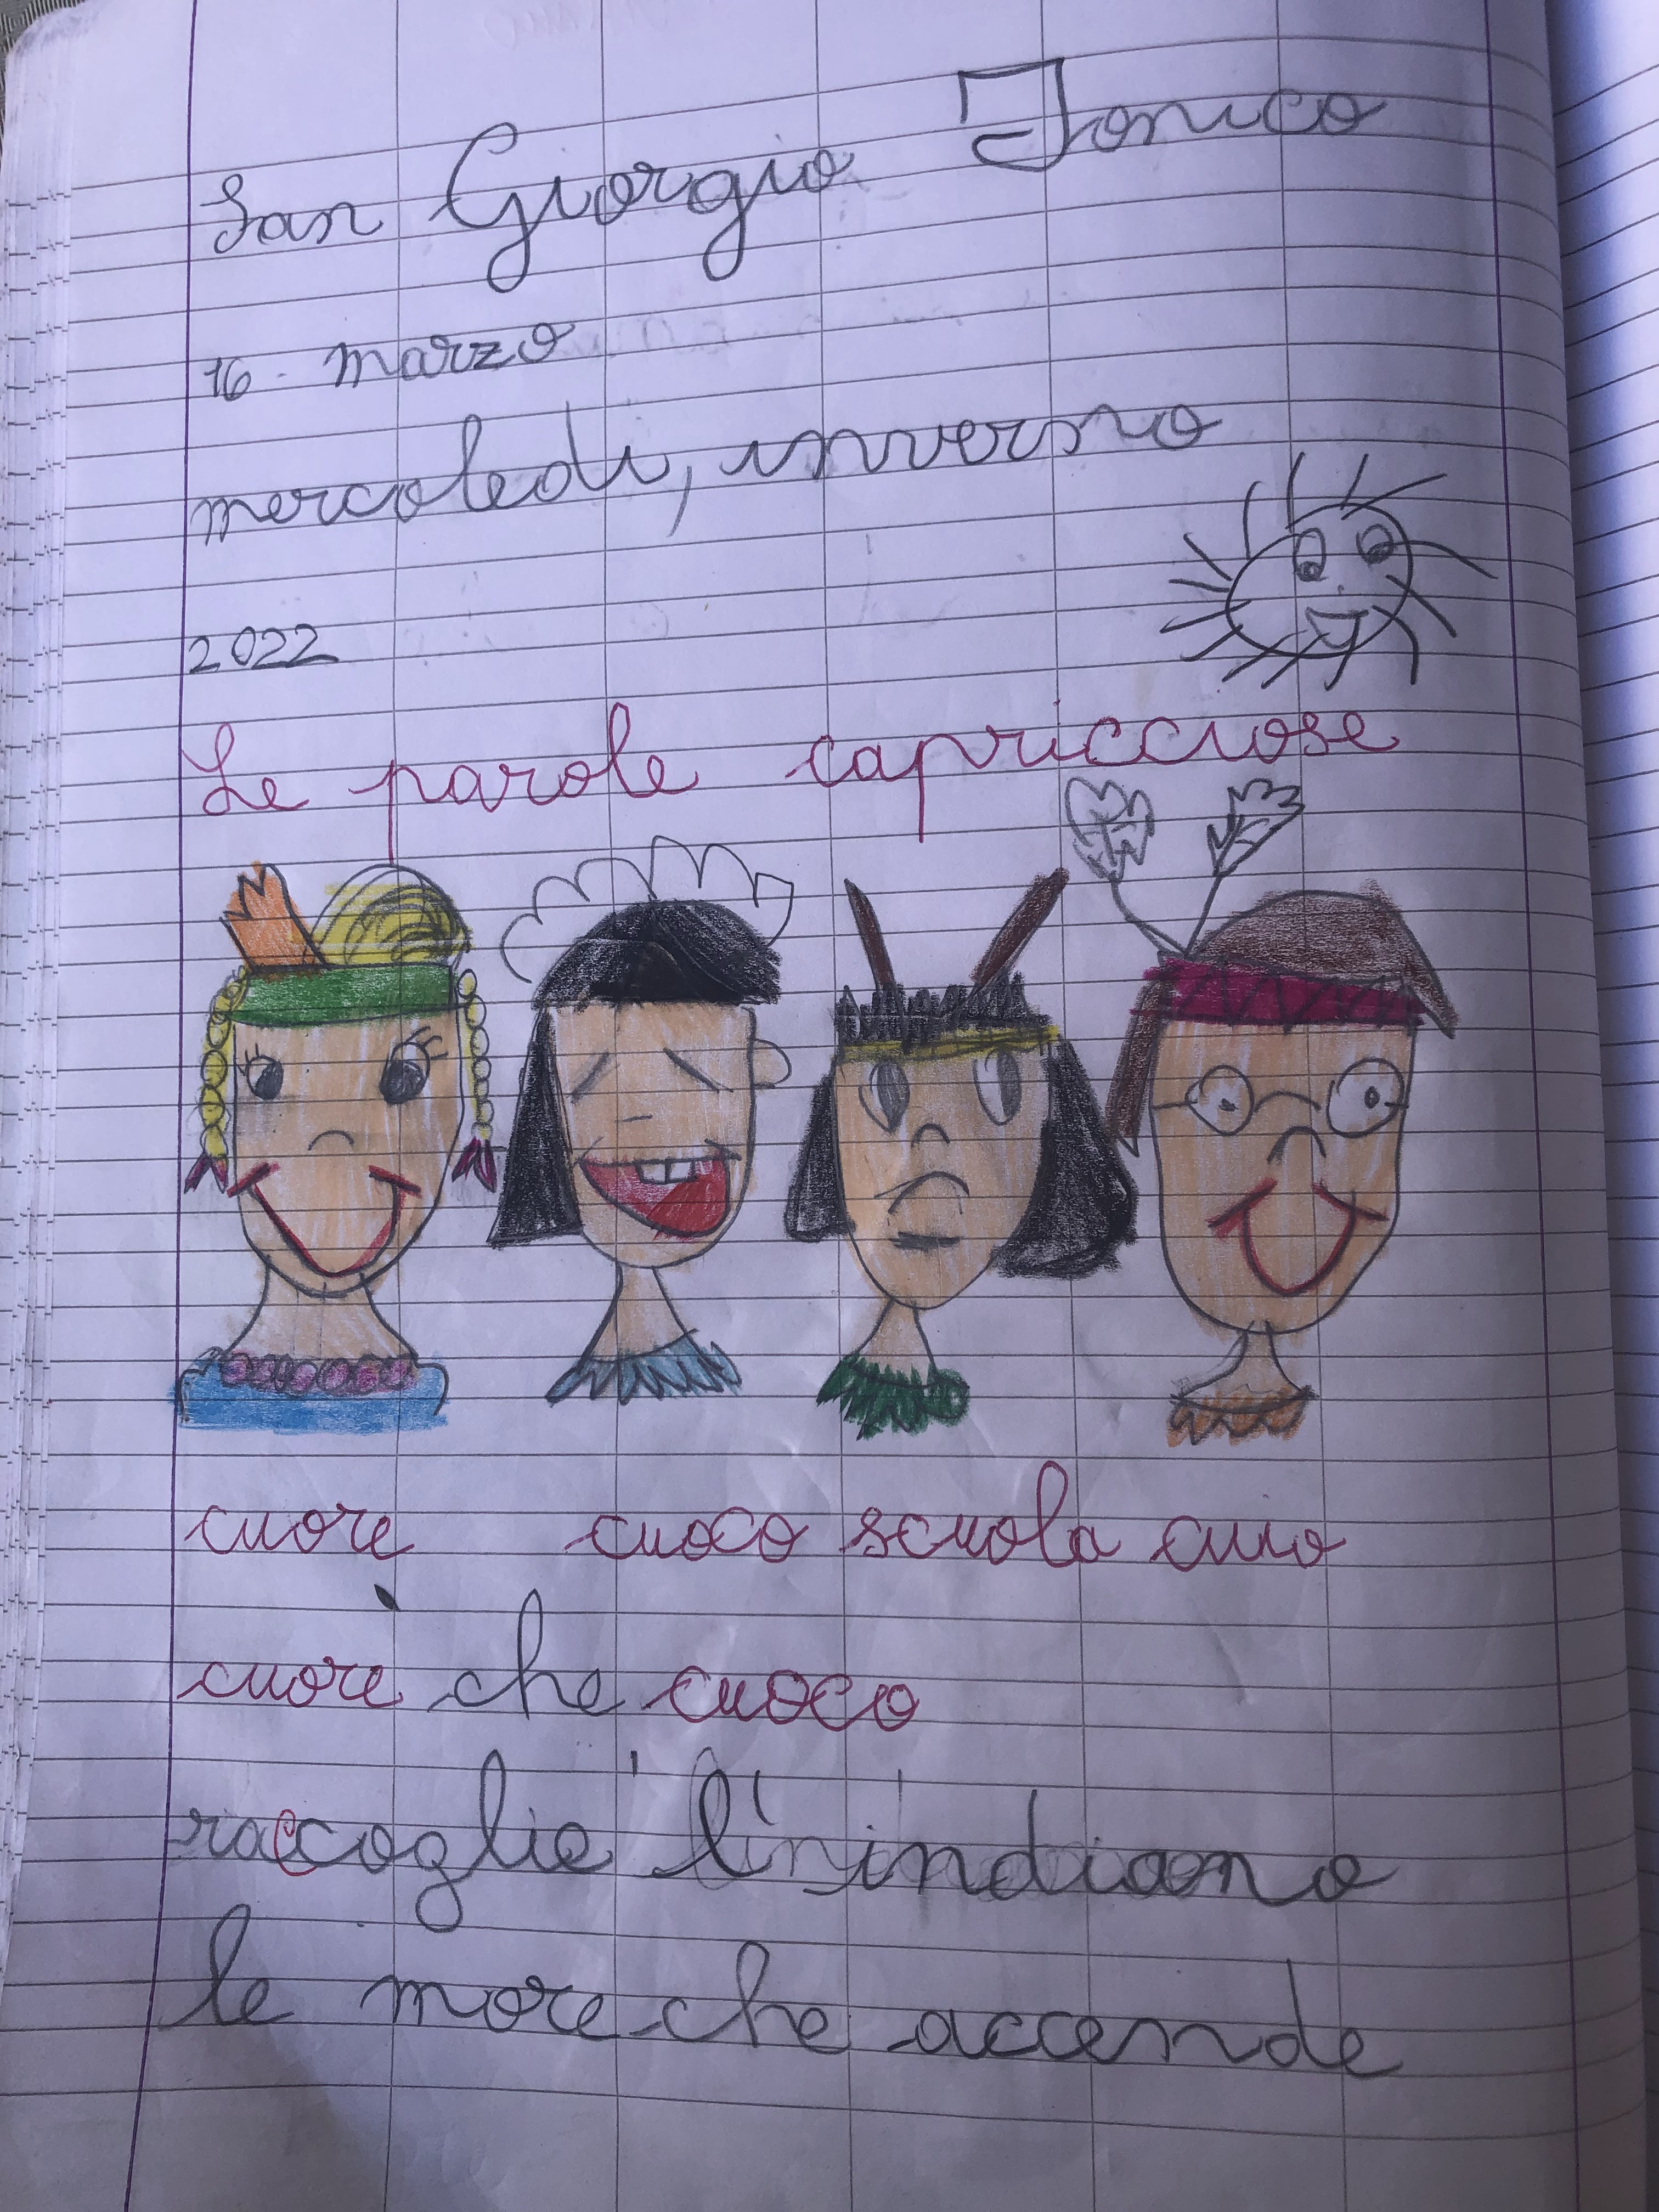 San Giorgio Jonico
16 marzo
mercoledi, inverno
2022
Le parole capricciose
cuore cuoco scuola cuoio
cuore che cuoco
raccoglie l'indiano
le more che accende